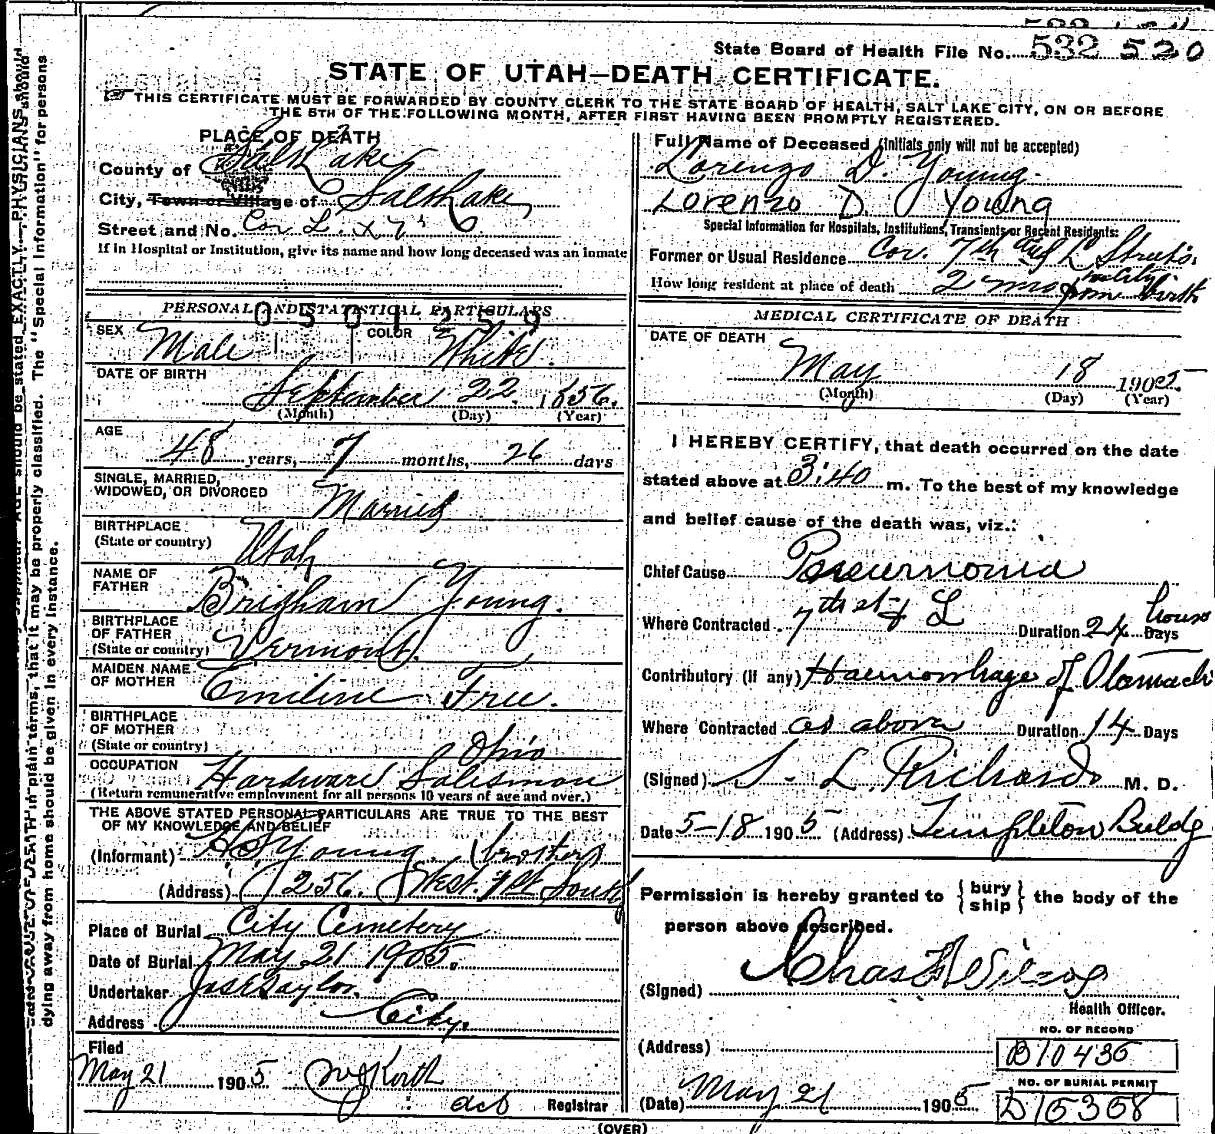 State Board of Health File No. 532 520
STATE OF UTAH—DEATH CERTIFICATE.
THIS CERTIFICATE MUST BE FORWARDED BY COUNTY CLERK TO THE STATE BOARD OF HEALTH, SALT LAKE CITY, ON OR BEFORE
THE 5TH OF THE FOLLOWING MONTH, AFTER FIRST HAVING BEEN PROMPTLY REGISTERED.
PLACE OF DEATH
County of Salt Lake
City, Town or Village of Salt Lake
Street and No. Cor L. & 7th
If in Hospital or Institution, give its name and how long deceased was an inmate
PERSONAL AND STATISTICAL PARTICULARS
SEX Male COLOR White
DATE OF BIRTH
September 22 1856.
(Month) (Day) (Year)
AGE
48 years, 7 months, 26 days
SINGLE, MARRIED,
WIDOWED, OR DIVORCED
Married
BIRTHPLACE
(State or country) Utah
NAME OF
FATHER Brigham Young.
BIRTHPLACE
OF FATHER
(State or country) Vermont.
MAIDEN NAME
OF MOTHER Emiline Free.
BIRTHPLACE
OF MOTHER
(State or country) Ohio
OCCUPATION Hardware Salesman
(Return remunerative employment for all persons 10 years of age and over.)
THE ABOVE STATED PERSONAL PARTICULARS ARE TRUE TO THE BEST
OF MY KNOWLEDGE AND BELIEF
(Informant) Young (brother)
(Address) 256. West. 1st South
Place of Burial City Cemetery
Date of Burial May 21 1905.
Undertaker Jos E Taylor.
Address City.
Filed
May 21 1905
Registrar
Full Name of Deceased (initials only will not be accepted)
Lorenzo D. Young.
Lorenzo D. Young
Special Information for Hospitals, Institutions, Transients or Recent Residents:
Former or Usual Residence Cor. 7th and L Streets.
How long resident at place of death 2 mo in city from birth
MEDICAL CERTIFICATE OF DEATH
DATE OF DEATH
May 18 1905.
(Month) (Day) (Year)
I HEREBY CERTIFY, that death occurred on the date
stated above at 3:40 m. To the best of my knowledge
and belief cause of the death was, viz.:
Chief Cause Pneumonia
Where Contracted 7th st & L Duration 24 hours Days
Contributory (if any) Haemorrhage of Stomach
Where Contracted as above Duration 14 Days
(Signed) S. L. Richards M. D.
Date 5-18 1905 (Address) Templeton Buldg
Permission is hereby granted to { bury ship } the body of the
person above described.
(Signed) Chas
Health Officer.
NO. OF RECORD
(Address) B10436
NO. OF BURIAL PERMIT
(Date) May 21 1905 D15358
(OVER)
dying away from home should be given in every instance.